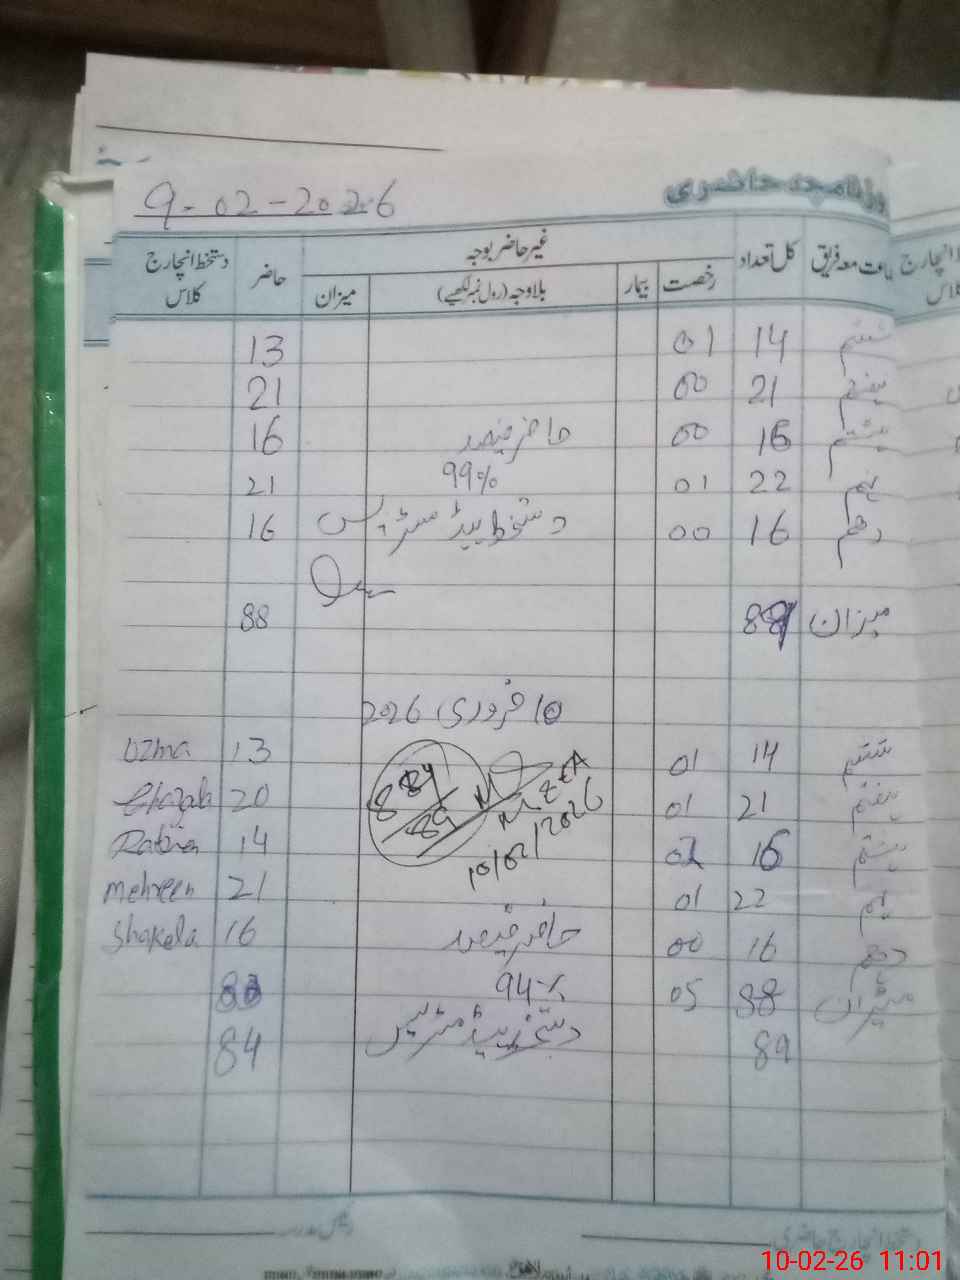 روزنامچہ حاضری
9-02-2026
جماعت معہ فریق کل تعداد غیر حاضر بوجہ حاضر دستخط انچارج کلاس
رخصت بیمار بلاوجہ (رول نمبر لکھیے) میزان
ششم 14 01 13
ہفتم 21 00 21
ہشتم 16 00 حاضر فیصد 16
نہم 22 01 99% 21
دھم 16 00 دستخط ہیڈ مسٹریس 16
میزان 89 88
10 فروری 2026
ششم 14 01 13 Uzma
ہفتم 21 01 20 Ghazala
ہشتم 16 02 14
نہم 22 01 21 Mehreen
دھم 16 00 حاضر فیصد 16 Shakela
میزان 88 05 94% 83
89 دستخط ہیڈ مسٹریس 84
84
89
MEA
10/02/2026
دستخط انچارج حاضری
رئیس مدرسہ
10-02-26 11:01